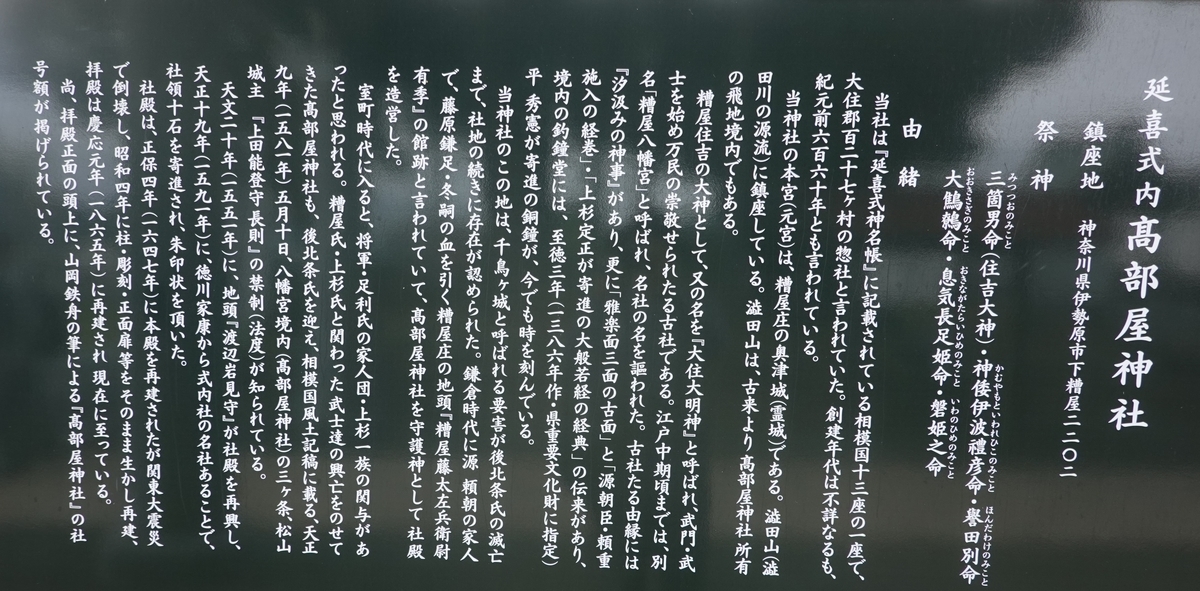 延喜式内髙部屋神社
鎮座地　神奈川県伊勢原市下糟屋二二〇二
祭神
三箇男命（住吉大神）・神倭伊波禮彦命・譽田別命
みつつおのみこと　かむやもといわれひこのみこと　ほんだわけのみこと
大鷦鷯命・息気長足姫命・磐姫之命
おおささぎのみこと　おきながたらいひめのみこと　いわのひめのみこと
由緒
当社は『延喜式神名帳』に記載されている相模国十三座の一座で、
大住郡百二十七ヶ村の惣社と言われていた。創建年代は不詳なるも、
紀元前六百六十年とも言われている。
当神社の本宮（元宮）は、糟屋庄の奥津城（霊城）である。澁田山（澁
田川の源流）に鎮座している。澁田山は、古来より髙部屋神社所有
の飛地境内でもある。
糟屋住吉の大神として、又の名を『大住大明神』と呼ばれ、武門・武
士を始め万民の崇敬せられたる古社である。江戸中期頃までは、別
名「糟屋八幡宮」と呼ばれ、名社の名を謳われた。古社たる由縁には
『汐汲みの神事』があり、更に「雅楽面三面の古面」と「源朝臣・頼重
施入の経巻」「上杉定正が寄進の大般若経の経典」の伝来があり、
境内の釣鐘堂には、至徳三年（一三八六年作・県重要文化財に指定）
平 秀憲が寄進の銅鐘が、今でも時を刻んでいる。
当神社のこの地は、千鳥ヶ城と呼ばれる要害が後北条氏の滅亡
まで、社地の続きに存在が認められた。鎌倉時代に源 頼朝の家人
で、藤原鎌足・冬嗣の血を引く糟屋庄の地頭『糟屋藤太左兵衛尉
有季』の館跡と言われていて、髙部屋神社を守護神として社殿
を造営した。
室町時代に入ると、将軍・足利氏の家人団・上杉一族の関与があ
ったと思われる。糟屋氏・上杉氏と関わった武士達の興亡をのせて
きた髙部屋神社も、後北条氏を迎え、相模国風土記稿に載る、天正
九年（一五八一年）五月十日、八幡宮境内（髙部屋神社）の三ヶ条、松山
城主　『上田能登守長則』の禁制（法度）が知られている。
天文二十年（一五五一年）に、地頭『渡辺岩見守』が社殿を再興し、
天正十九年（一五九一年）に、徳川家康から式内社の名社あることで、
社領十石を寄進され、朱印状を頂いた。
社殿は、正保四年（一六四七年）に本殿を再建されたが関東大震災
で倒壊し、昭和四年に柱・彫刻・正面扉等をそのまま生かし再建、
拝殿は慶応元年（一八六五年）に再建され現在に至っている。
尚、拝殿正面の頭上に、山岡鉄舟の筆による『髙部屋神社』の社
号額が掲げられている。